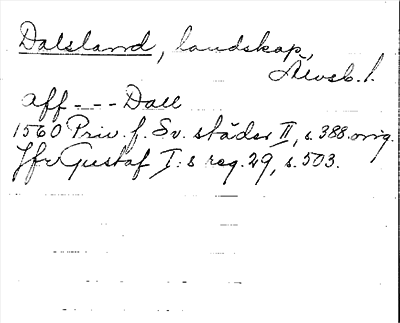 Dalsland, landskap,
Älvsb. l.
aff - - - Dall
1560 Priv. f. Sv. städer II, s. 388. orig.
Jfr Gustaf I:s reg. 29, s. 503.